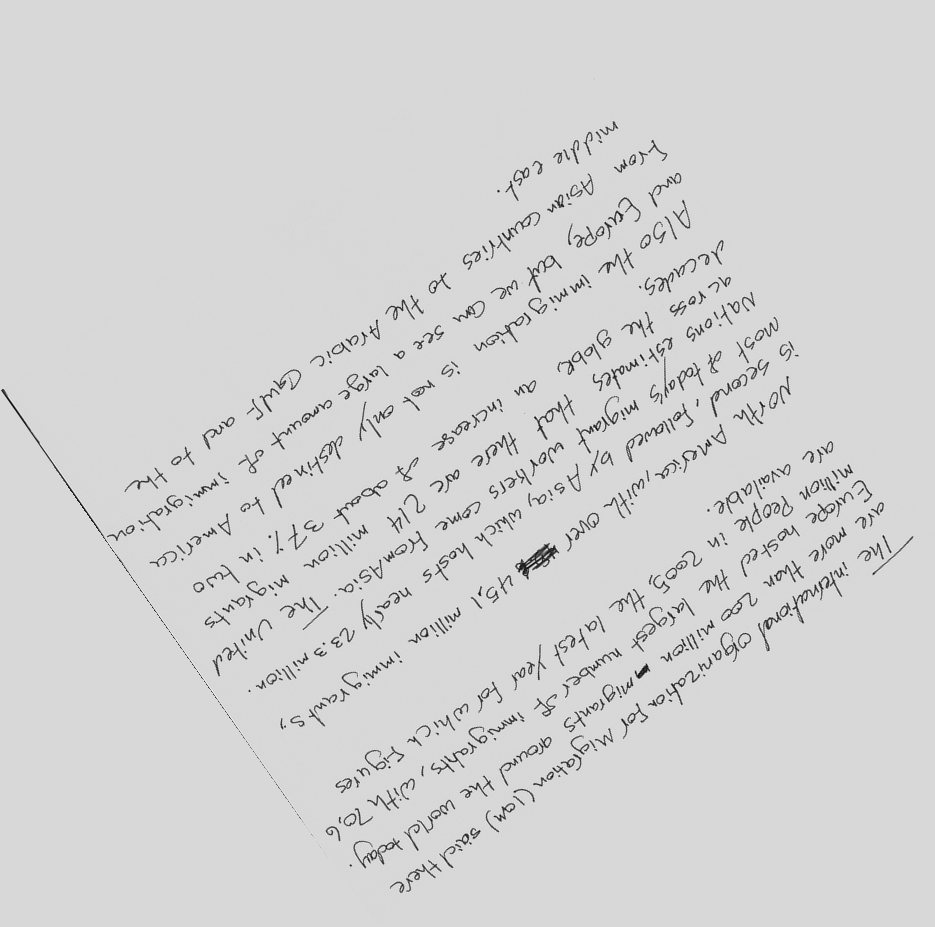 The international Oganization For Migration (Iom) said there
are more than 200 million migrants around the world today.
Europe hosted the largest number of immigrants, with 70,6
million People in 2005, the latest year For which Figures
are available.
North America, with over 45,1 million immigrants,
is second, Followed by Asia, which hosts nearly 23.3 million.
Most of today's migrant workers come From Asia. The United
Nations estimates that there are 214 million migrants
across the globe an increase of about 37% in two
decades.
Also the immigration is not only destined to America
and Europe, but we can see a large amount of immigration
From Asian countries to the Arabic Gaulf and to the
middle east.